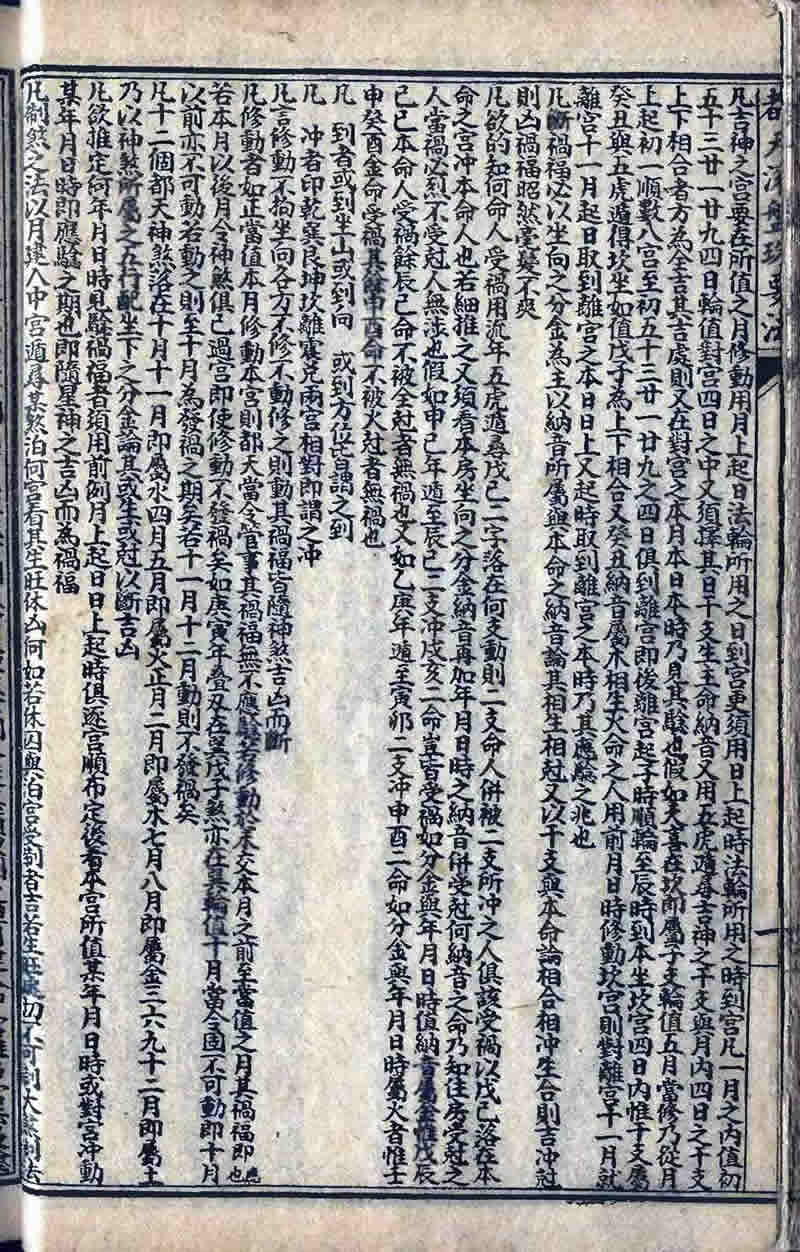 凡吉神之宮要在所值之月修動用月上起日法輪所用之日到宮更須用日上起時法輪所用之時到宮凡一月之內值初
五十三廿一廿九四日輪值對宮四日之中又須擇其日干支生主命納音又用五虎遁尋吉神之干支與月內四日之干支
上下相合者方為全吉其吉處則又在對宮之本月本日本時乃見其驗也假如天喜在坎即屬子支輪值五月當修乃從月
上起初一順數八宮至初五十三廿一廿九之四日俱到離宮即從離宮起子時順輪至辰時到本坐坎宮四日內惟干支屬
癸丑與五虎遁得坎坐如值戊子為上下相合又癸丑納音屬木相生火命之人用前月日時修動坎宮則對離宮十一月就
離宮十一月起日取到離宮之本日日上又起時取到離宮之本時乃其應驗之兆也
凡斷禍福必以坐向之分金為主以納音所屬與本命之納音論其相生相尅又以干支與本命論相合相冲生合則吉冲尅
則凶禍福昭然毫髮不爽
凡欲的知何命人受禍用流年五虎遁尋戊己二字落在何支動則二支命人併被二支所冲之人俱該受禍以戊己落在本
命之宮冲本命人也若細推之又須看本房坐向之分金納音再加年月日時之納音併受尅何納音之命乃知住房受尅之
人當禍必烈不受尅人無涉也假如申己年遁至辰巳二支冲戌亥二命豈皆受禍如分金與年月日時值納音屬金惟戊辰
己巳本命人受禍餘辰巳命不被全尅者無禍也又如乙庚年遁至寅卯二支冲申酉二命如分金與年月日時屬火者惟壬
申癸酉金命受禍其餘申酉命不被火尅者無禍也
凡 到者或到坐山或到向 或到方位皆謂之到
凡 冲者即乾巽艮坤坎離震兌兩宮相對即謂之冲
凡言修動不拘坐向各方不修不動修之則動其禍福皆隨神煞吉凶而斷
凡修動者如正當值本月修動本宮則都天當令管事其禍福無不應驗若修動於未交本月之前至當值之月其禍福即應也
若本月以後月令神煞俱已過宮即使修動不發禍矣如庚寅年叠刃在巽戊子煞亦在巽輪值十月當令固不可動即十月
以前亦不可動若動之則至十月為發禍之期矣若十一月十二月動則不發禍矣
凡十二個都天神煞落在十月十一月即屬水四月五月即屬火正月二月即屬木七月八月即屬金三六九十二月即屬土
乃以神煞所屬之五行配坐下之分金論其或生或尅以斷吉凶
凡欲推定何年月日時見驗禍福者須用前例月上起日日上起時俱逐宮順布定後看本宮所值某年月日時或對宮冲動
某年月日時即應驗之期也即隨星神之吉凶而為禍福
凡制煞之法以月建入中宮遁尋某煞泊何宮看其生旺休囚何如若休囚與泊宮受制者吉若生旺